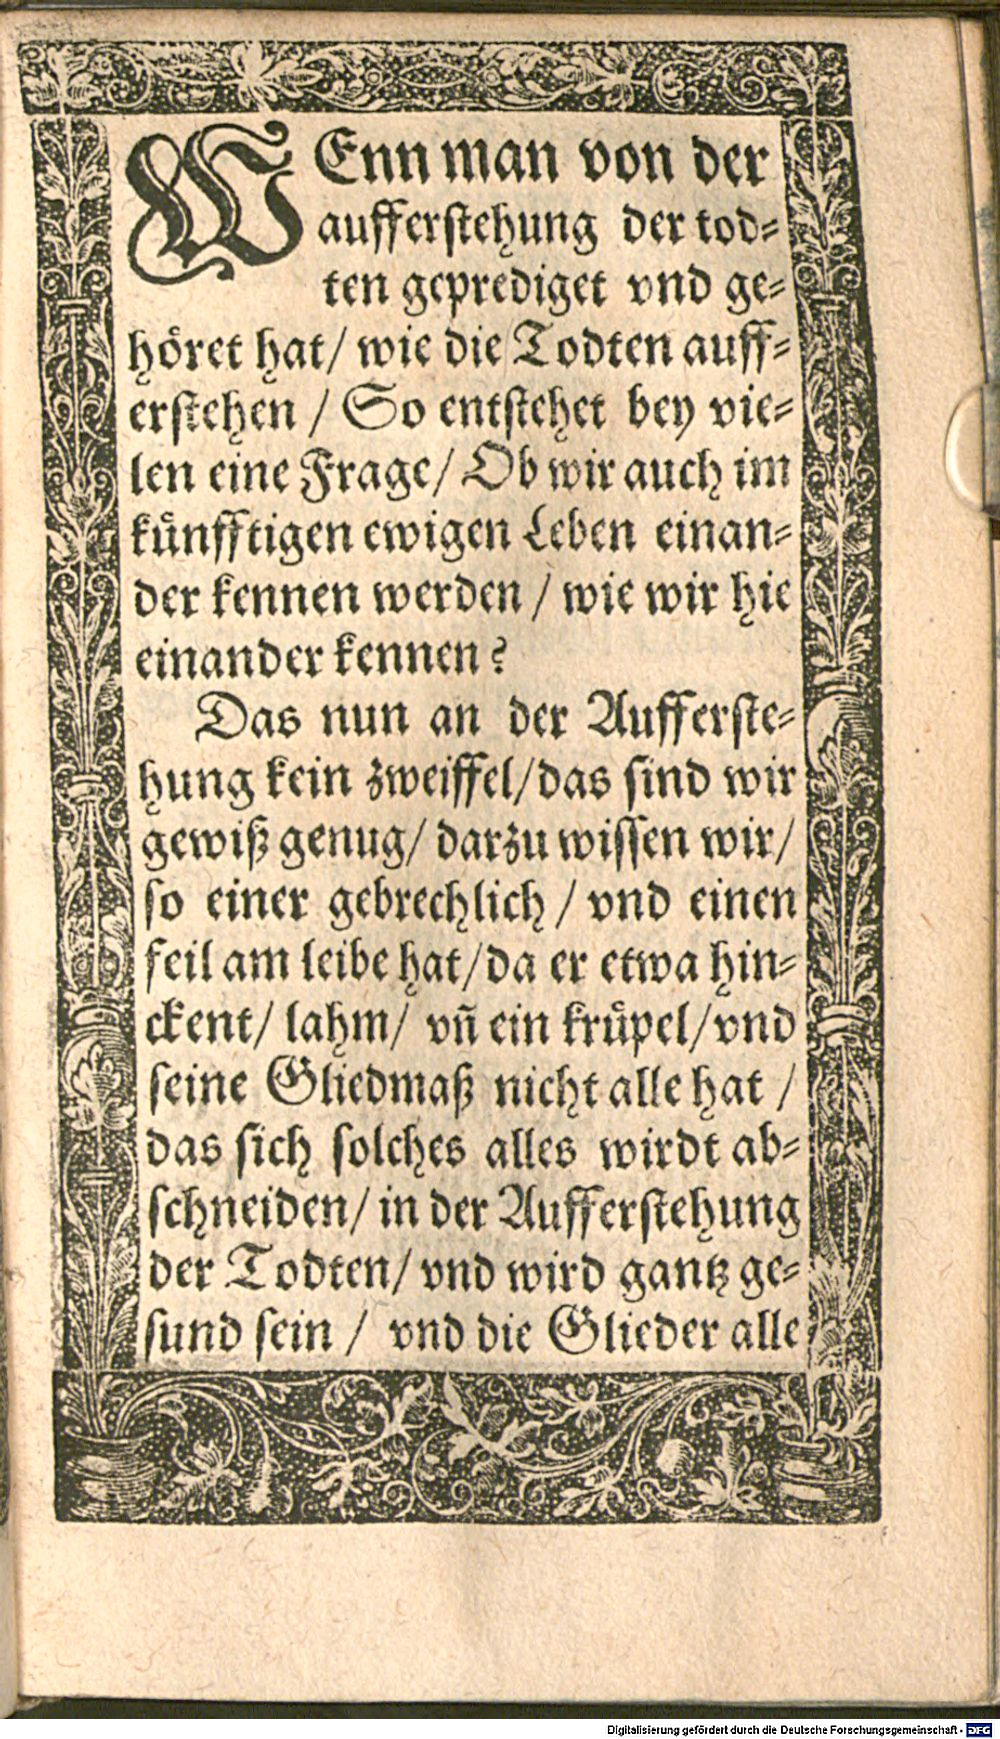 WEnn man von der
aufferstehung der tod⸗
ten geprediget vnd ge⸗
hoͤret hat/ wie die Todten auff⸗
erstehen / So entstehet bey vie⸗
len eine Frage/ Ob wir auch im
kuͤnfftigen ewigen Leben einan⸗
der kennen werden / wie wir hie
einander kennen?
Das nun an der Aufferste⸗
hung kein zweiffel/das sind wir
gewiß genug/ darzu wissen wir/
so einer gebrechlich / vnd einen
feil am leibe hat/da er etwa hin⸗
ckent/ lahm/ vñ ein kruͤpel/vnd
seine Gliedmaß nicht alle hat /
das sich solches alles wirdt ab⸗
schneiden/ in der Aufferstehung
der Todten/ vnd wird gantz ge⸗
sund sein / vnd die Glieder alle
Digitalisierung gefördert durch die Deutsche Forschungsgemeinschaft - DFG